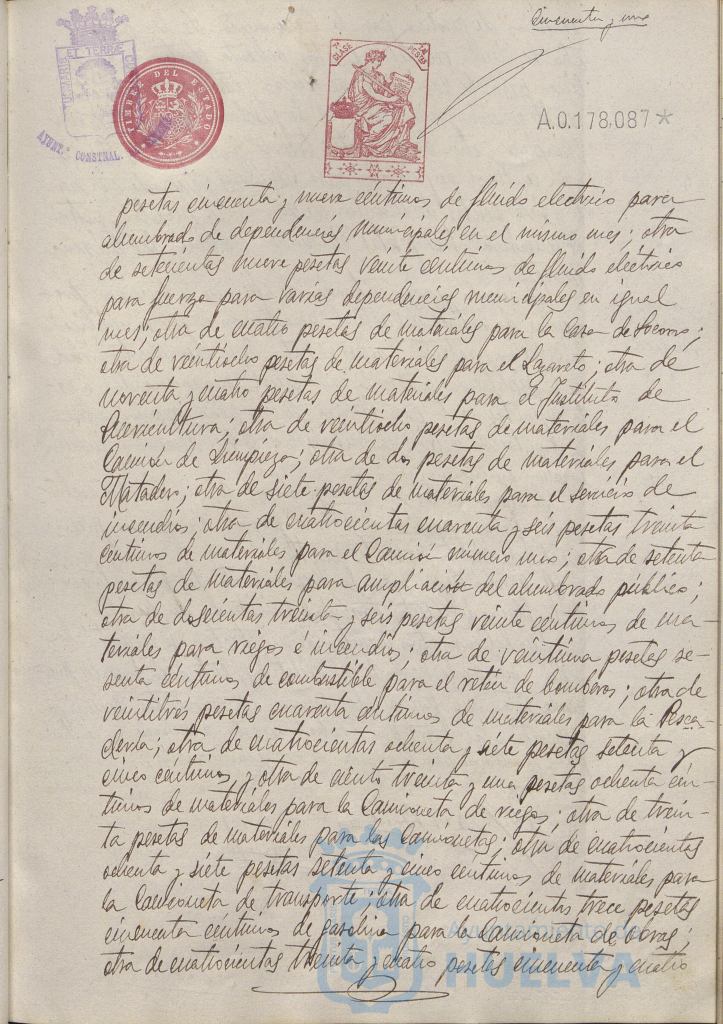 Cincuenta y uno
PORTUS MARIS ET TERRAE CUSTODIA
AYUNT.º CONSTNAL.
TIMBRE DEL ESTADO
CLASE PESTAS
A.0.178.087*
pesetas cincuenta y nueve céntimos de fluido electrico para
alumbrado de dependencias municipales en el mismo mes; otra
de setecientas nueve pesetas veinte céntimos de fluido eléctrico
para fuerza para varias dependencias municipales en igual
mes; otra de cuatro pesetas de materiales para la Casa de Socorro;
otra de veintiocho pesetas de materiales para el Lazareto; otra de
noventa y cuatro pesetas de materiales para el Instituto de
otra de veintiocho pesetas de materiales para el
Camión de Limpieza; otra de dos pesetas de materiales para el
Matadero; otra de siete pesetas de materiales para el servicio de
incendios; otra de cuatrocientas cuarenta y seis pesetas treinta
céntimos de materiales para el Camión número uno; otra de setenta
pesetas de materiales para ampliación del alumbrado público;
otra de doscientas treinta y seis pesetas veinte céntimos de ma-
teriales para riegos é incendios; otra de veintiuna pesetas se-
senta céntimos de combustible para el reten de bomberos; otra de
veintitrés pesetas cuarenta céntimos de materiales para la Pesca-
dería; otra de cuatrocientas ochenta y siete pesetas setenta y
cinco céntimos, y otra de ciento treinta y una pesetas ochenta cén-
timos de materiales para la Camioneta de riegos; otra de trein-
ta pesetas de materiales para las Camionetas; otra de cuatrocientas
ochenta y siete pesetas setenta y cinco centimos de materiales para
la Camioneta de transporte; otra de cuatrocientas trece pesetas
cincuenta céntimos de gasolina para la Camioneta de obras;
otra de cuatrocientas treinta y cuatro pesetas cincuenta y cuatro
Ayuntamiento de
HUELVA